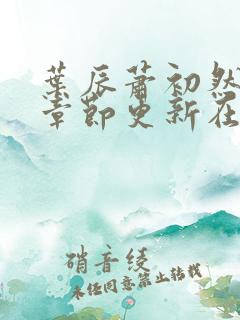 葉辰蕭初然
章節更新在
硝音綾
未经同意禁止转载